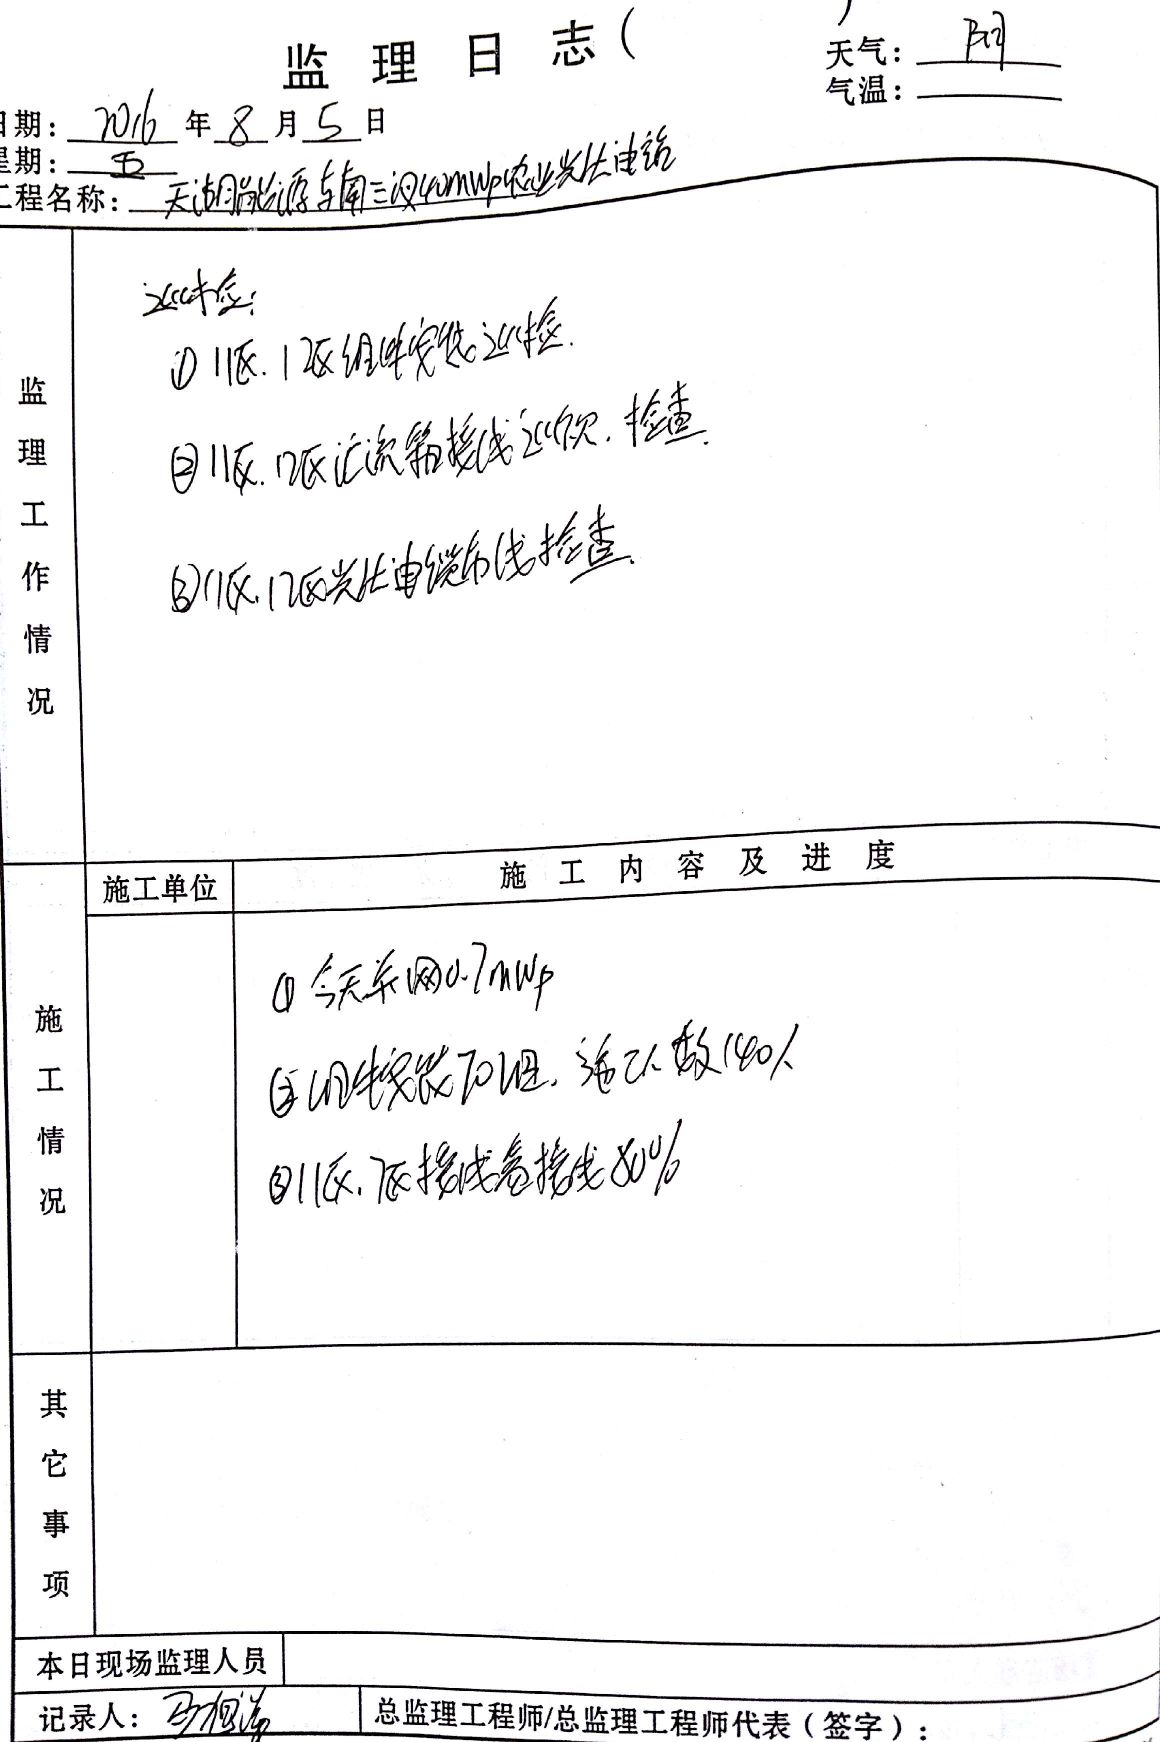 监理日志（ ）
天气： 阴
气温：
日期： 2016 年 8 月 5 日
星期： 五
工程名称： 天湖 能源东南三汊40MWp农业光伏电站
监理工作情况
巡检：
① 11区、12区组件安装巡检.
② 11区、12区汇流箱接线巡视、检查.
③ 11区、12区光伏电缆布线检查.
施工情况
施工单位
施工内容及进度
① 今天并网0.7MWp
② 组件安装70组、施工人数140人
③ 11区、7区接线盒接线80%
其它事项
本日现场监理人员
记录人： 马
总监理工程师/总监理工程师代表（签字）：